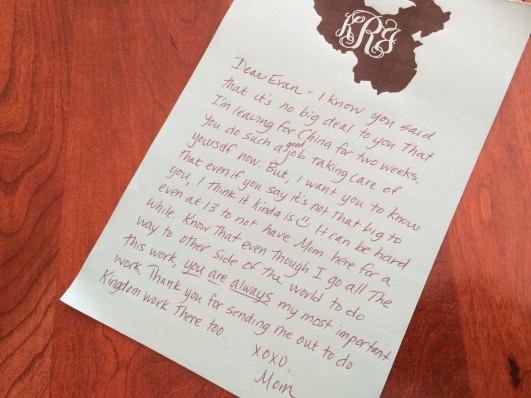 KRJ
Dear Evan - I know you said
that it's no big deal to you That
I'm leaving for China for two weeks.
You do such a good job taking care of
yourself now. But, I want you to know
that even if you say it's not that big to
you, I think it kinda is It can be hard
even at 13 to not have Mom here for a
while. Know That even though I go all The
way to other side of the world to do
this work, you are always my most important
work. Thank you for sending me out to do
Kingdom work There too
XOXO.
Mom